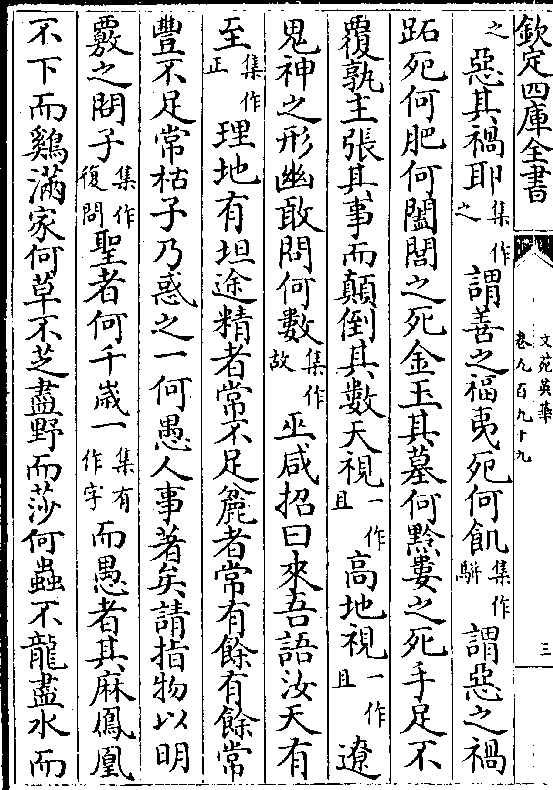 欽定四庫全書
文苑英華
卷九百九十九
三
之惡其禍耶集作之謂善之福夷死何飢集作駢謂惡之禍
跖死何肥何闔閭之死金玉其墓何黔婁之死手足不
覆孰主張其事而顛倒其數天視一作且高地視一作且遼
鬼神之形幽敢問何數集作故巫咸招曰來吾語汝天有
至集作正理地有坦途精者常不足麄者常有餘有餘常
豐不足常枯子乃惑之一何愚人事著矣請指物以明
覈之問子集作復問聖者何千歲一集有作字而愚者其麻鳳凰
不下而鷄滿家何草不芝盡野而莎何蟲不龍盡水而